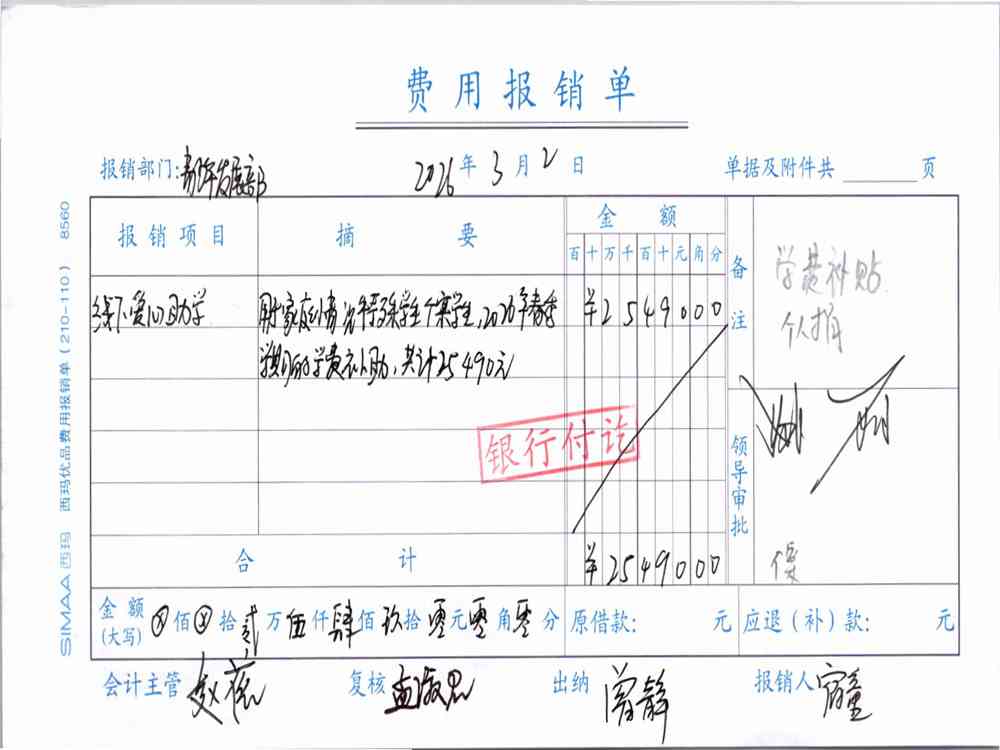 费用报销单
报销部门: 2026年3月2日 单据及附件共 页
报销项目 摘要 金额
百十万千百十元角分
线下爱心助学 用于家庭情况特殊学生个案学生,2026年春季 ¥2549000
学期的学费补助,共计25490元
备注
学费补贴
个人捐
银行付讫
领导审批
合计 ¥2549000
金额(大写) ⊗佰⊗拾贰万伍仟肆佰玖拾零元零角零分 原借款: 元 应退(补)款: 元
会计主管 复核 出纳 曾静 报销人
SIMAA 西玛 西玛优品费用报销单(210-110) 8560